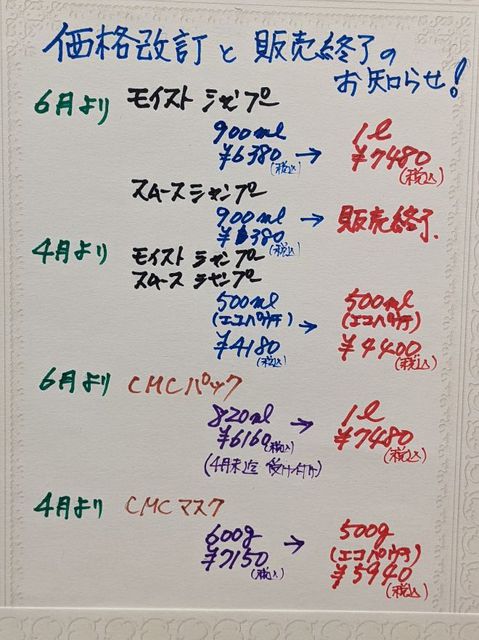 価格改訂と販売終了の
お知らせ!
6月より モイストシャンプー
900ml → 1l
¥6380(税込) ¥7480(税込)
スムースシャンプー
900ml → 販売終了.
¥6380(税込)
4月より モイストシャンプー
スムースシャンプー
500ml → 500ml
(エコパウチ) (エコパウチ)
¥4180(税込) ¥4400(税込)
6月より CMCパック
820ml → 1l
¥6160(税込) ¥7480(税込)
(4月末迄 受け付け)
4月より CMCマスク
600g → 500g
(エコパウチ)
¥7150(税込) ¥5940(税込)